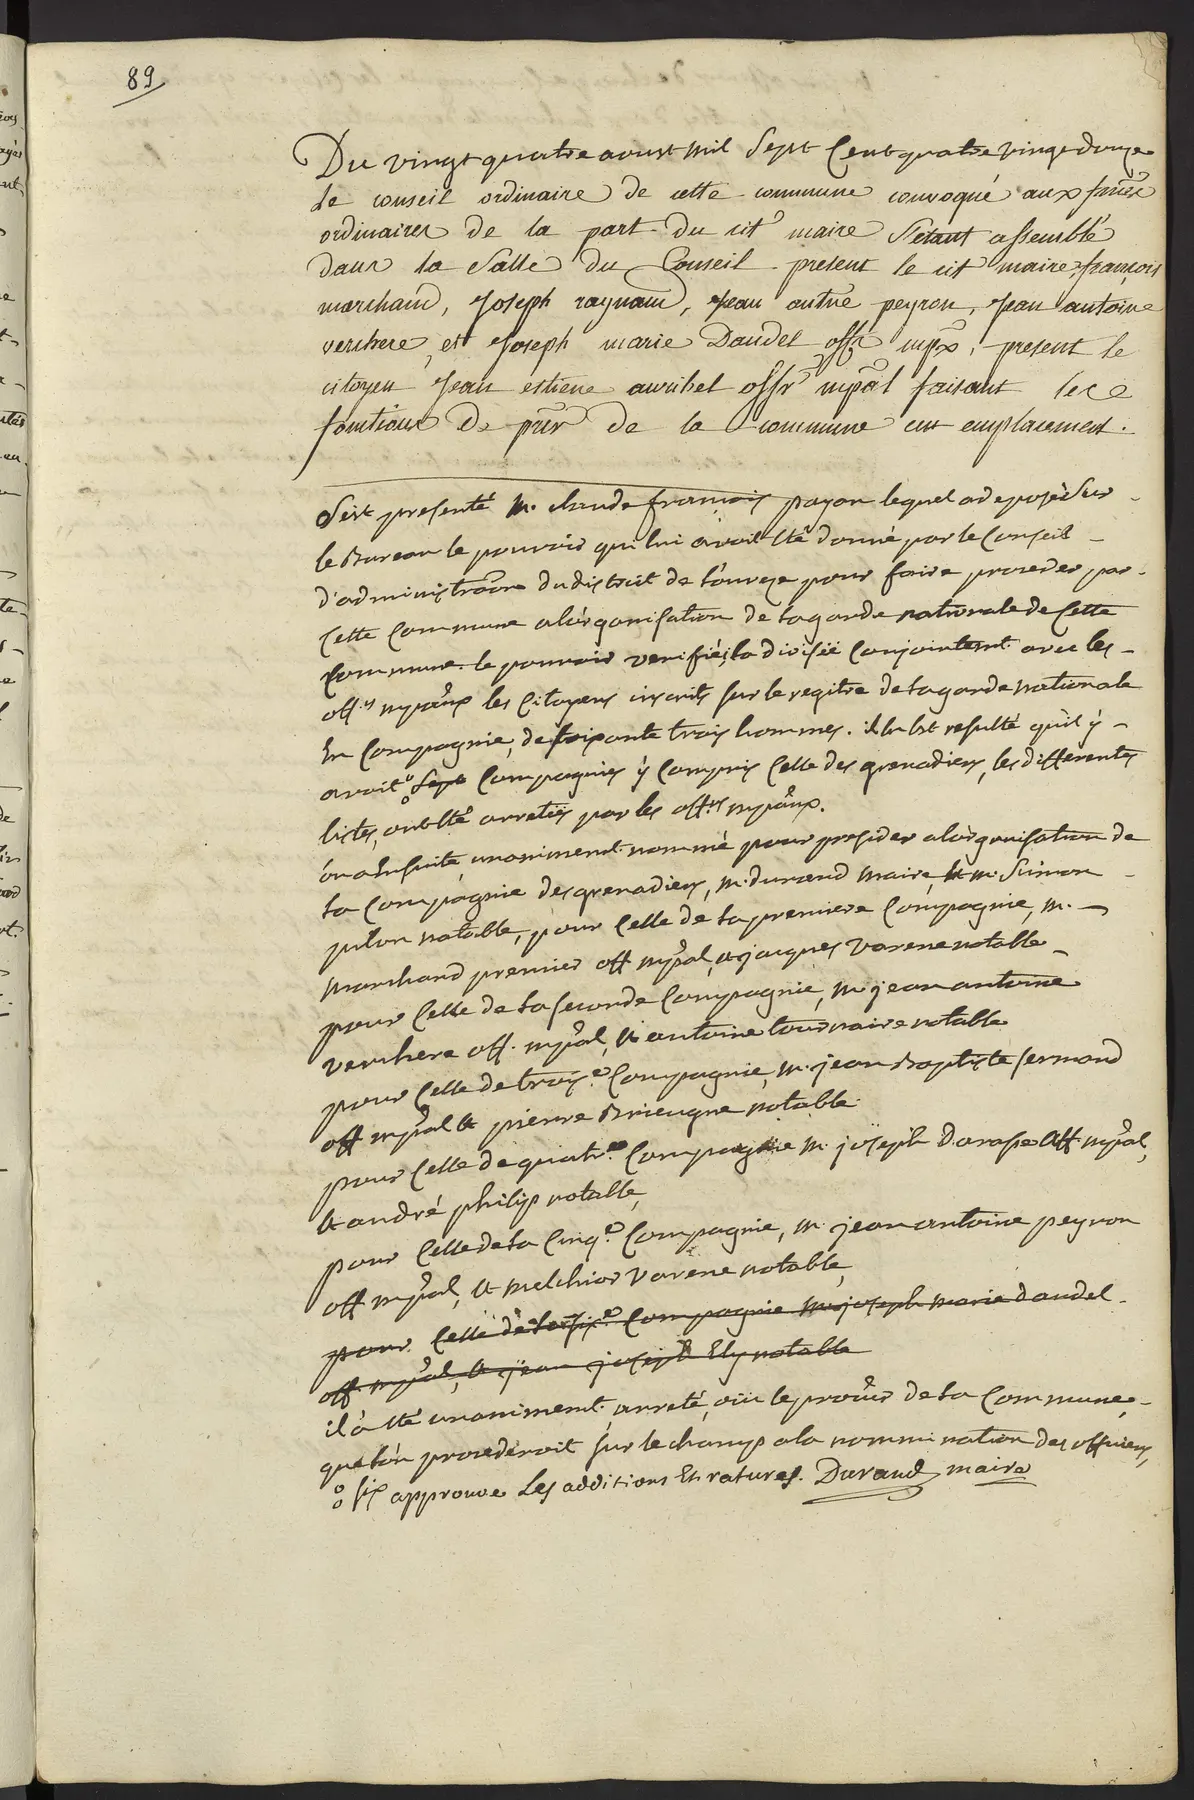 89
Du vingt quatre aoust mil sept Cent quatre vingt douze
Le conseil ordinaire de cette commune convoqué aux formes
ordinaires de la part du cit maire s'etant assemblé
dans la Salle du Conseil present le cit maire, françois
marchand, Joseph raynaud, Jean antne peyron, Jean antoine
verchere, et Joseph marie Daudel offrs mpx, present le
citoyen Jean estiene auribel offr mpal faisant les
fonctions de prr de la commune en emplacement.
s'est presenté m. claude françois payan lequel a deposé sur
le Bureau le pouvoir qui lui avoit eté donné par le Conseil
d'administraōn du district de Louveze pour faire proceder par
cette Commune a l'organisation de la garde nationale de Cette
Commune. le pouvoir verifié, il a divisé Conjointemt avec les
offrs mpaux les Citoyens inscrits sur le registre de la garde nationale
En Compagnie, de soixante trois hommes. il En Est resulté qu'il y
avoit ° sept Compagnies y Compris Celle des grenadiers, les differents
listes, ont Eté arretées par les offrs mpaux.
on a Ensuite, unanimemt nommé pour presider a l'organisation de
la Compagnie des grenadiers, m. durand maire, & m. Simon
pilon notable, pour Celle de la premiere Compagnie, m.
marchand premier off mpal, & jacques Varene notable
pour Celle de la seconde Compagnie, m. jean antoine
verchere off. mpal, & antoine tournaire notable
pour Celle de troise Compagnie, m. jean Baptiste fermond
off mpal & pierre Brieugne notable
pour Celle de quatre Compagnie m. joseph darasse off mpal,
& andré philip notable,
pour Celle de la Cinqe Compagnie, m. jean antoine peyron
off mpal, & melchior Varene notable,
pour Celle de la sixe Compagnie m. joseph marie daudel
off. mpal, & jean joseph Ely notable
il a eté unanimemt arreté, oüi le procūr de la Commune,
que l'on procederoit sur le champ a la nommination des officiers,
° six approuve Les additions Et ratures. Durand maire